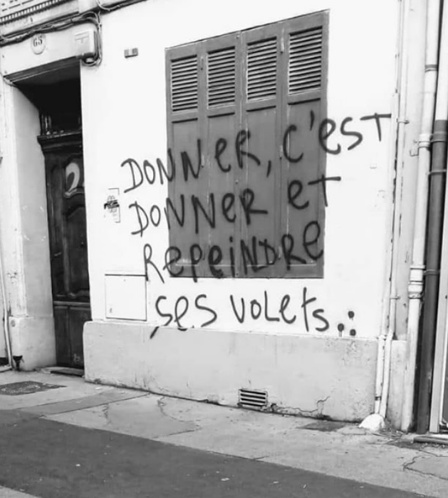 63
DONNER, C'EST
DONNER ET
REPEINDRE
SES VOLETS..